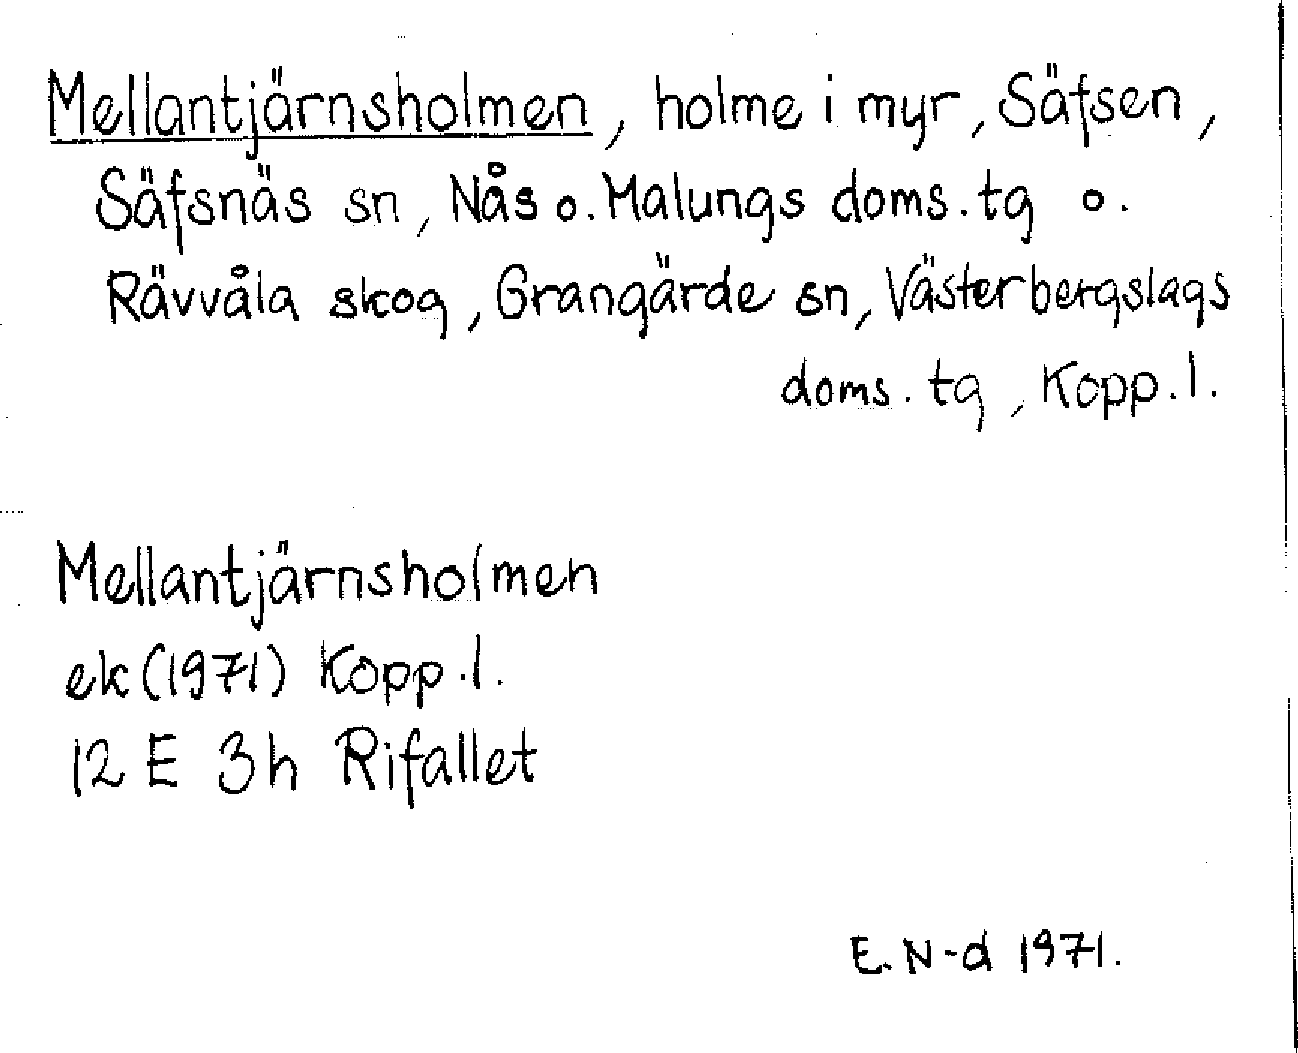 Mellantjärnsholmen, holme i myr, Säfsen,
Säfsnäs sn, Nås o. Malungs doms. tg o.
Rävvåla skog, Grangärde sn, Västerbergslags
doms. tg, Kopp. l.
Mellantjärnsholmen
ek (1971) Kopp. l.
12 E 3h Rifallet
E. N-d 1971.